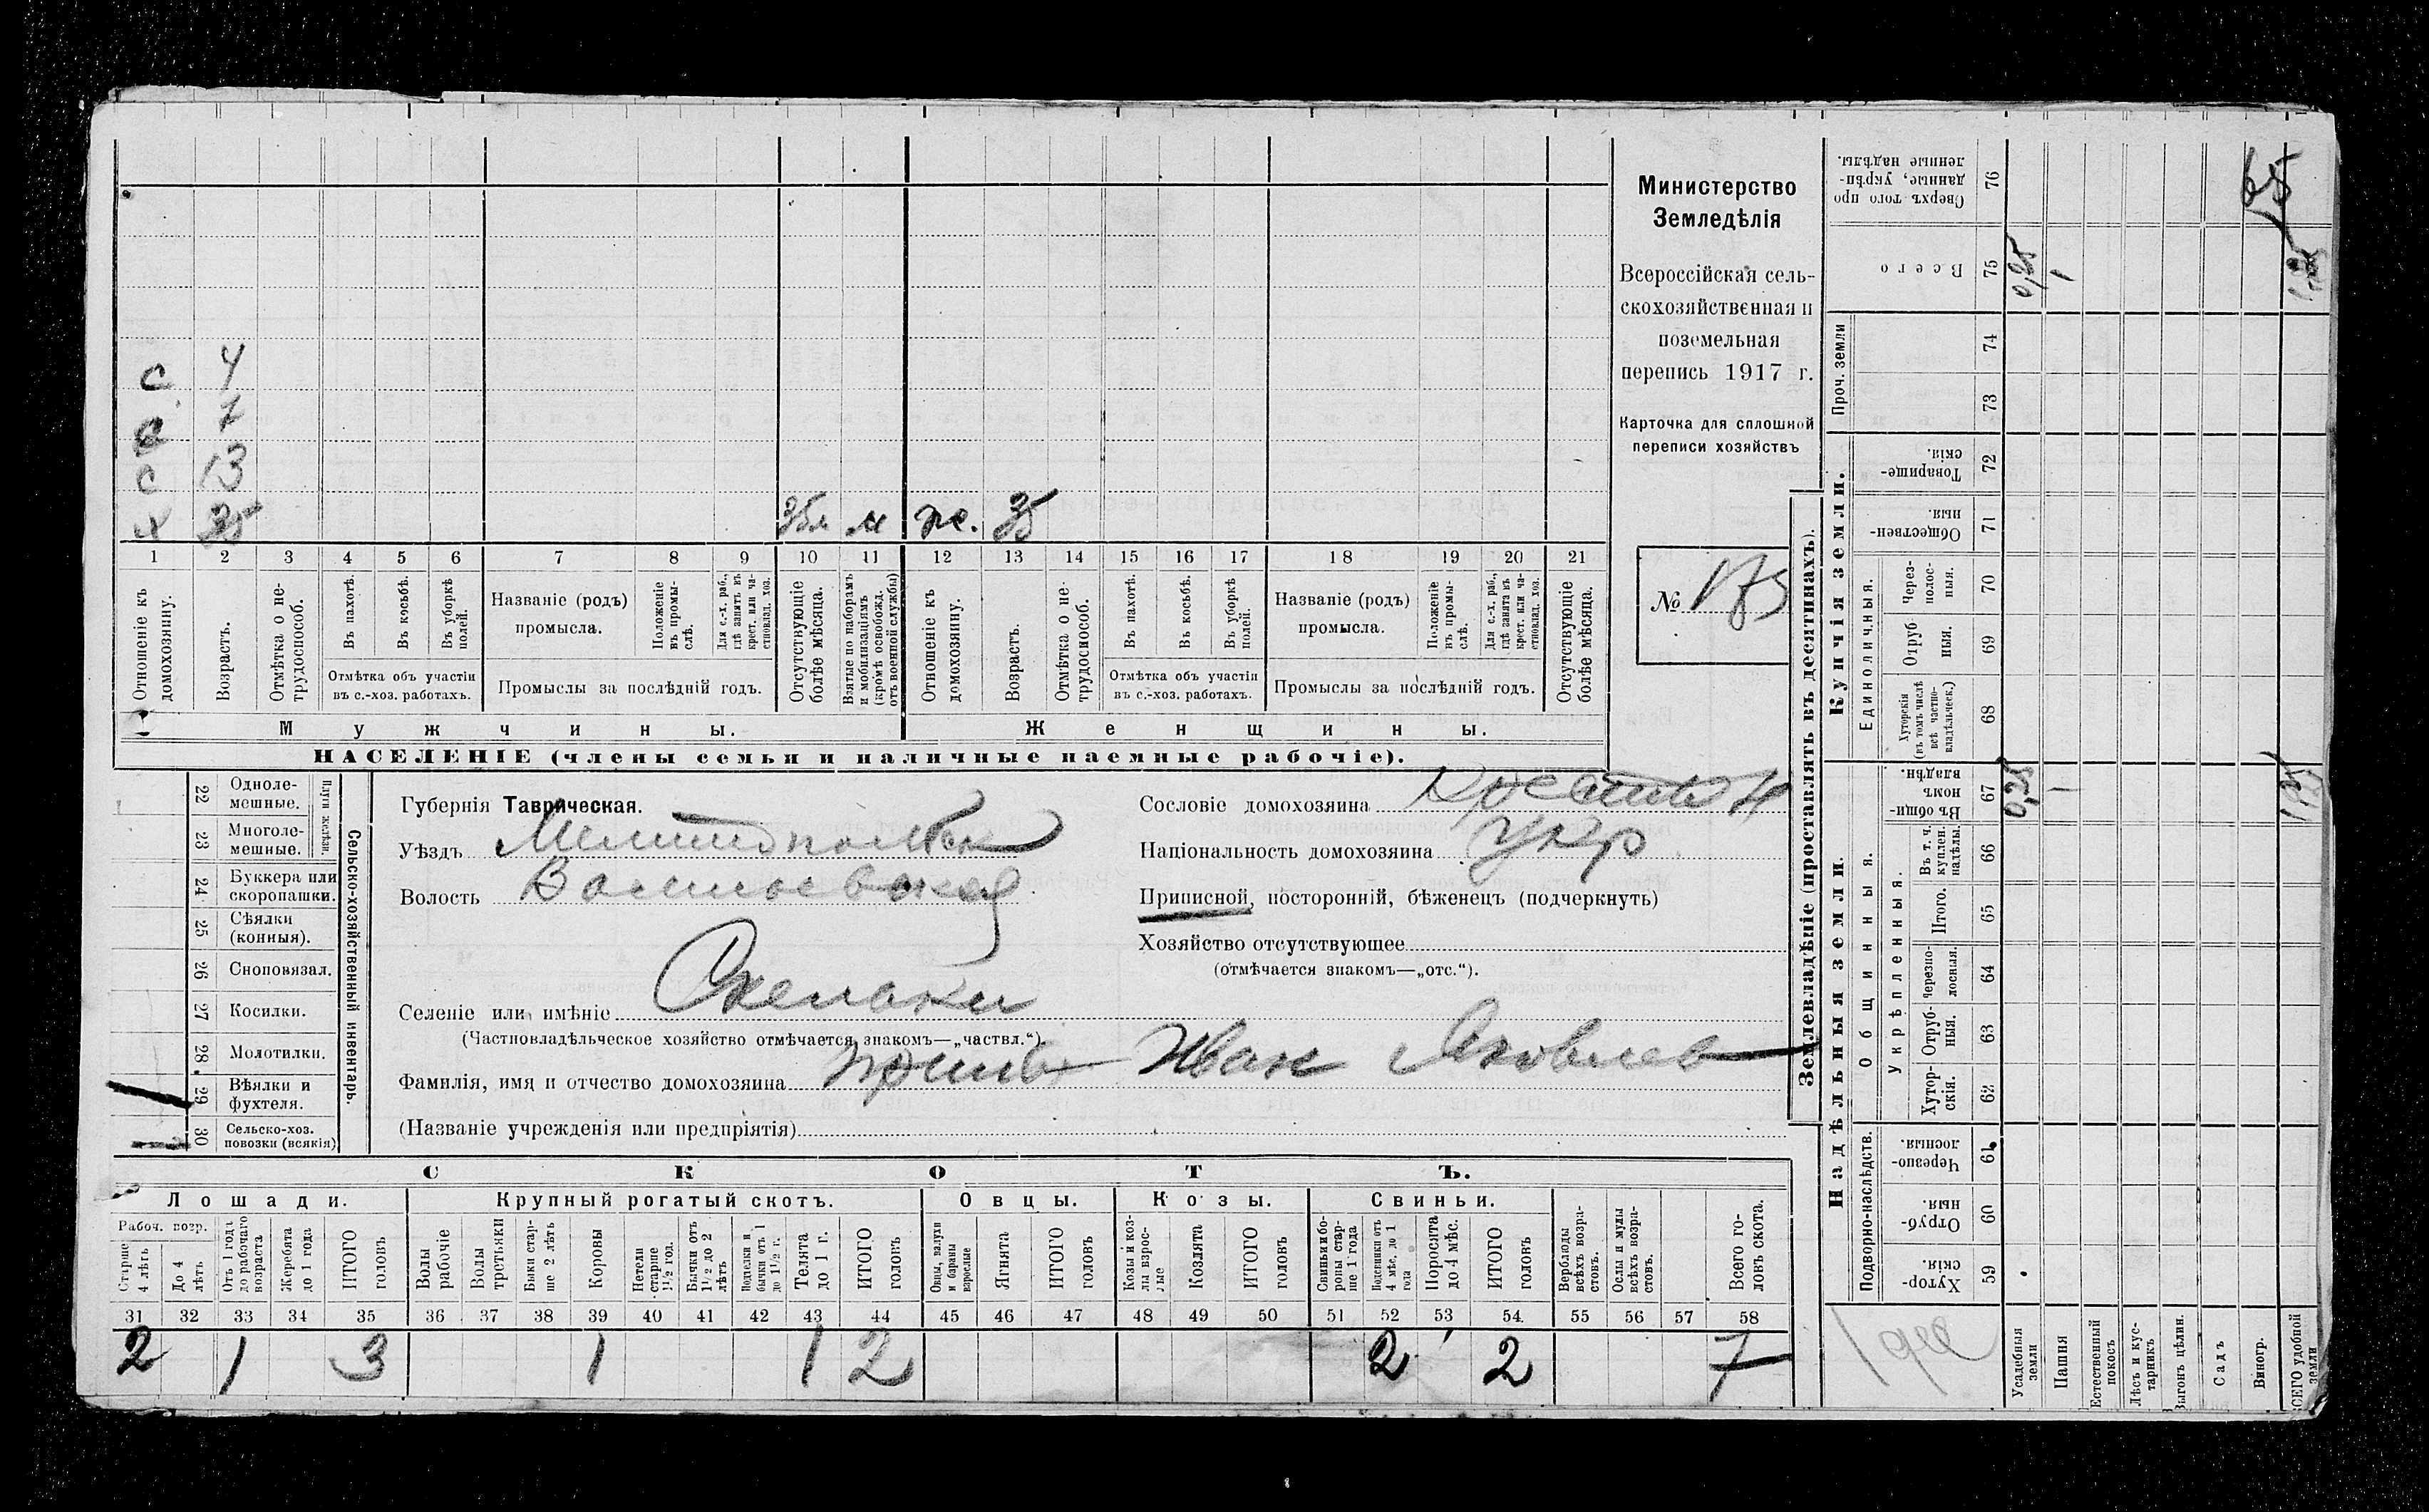 Министерство
Земледѣлія
Всероссійская сель-
скохозяйственная и
поземельная
перепись 1917 г.
Карточка для сплошной
переписи хозяйствъ
№
с 4
с 7
с 13
х 35 м 35
1 2 3 4 5 6 7 8 9 10 11 12 13 14 15 16 17 18 19 20 21
Отношеніе къ домохозяину.
Возрастъ.
Отмѣтка о не-трудоспособ.
Въ пахотѣ.
Въ косьбѣ.
Въ уборкѣ полей.
Отмѣтка объ участіи
въ с.-хоз. работахъ.
Названіе (родъ)
промысла.
Положеніе въ промы-слѣ.
Для с.-х. раб., гдѣ занятъ въ крест. или ча-стновлад. хоз.
Промыслы за послѣдній годъ.
Отсутствующіе болѣе мѣсяца.
Взятые по наборамъ и мобилизаціямъ (кромѣ освобожд. отъ военной службы)
Отношеніе къ домохозяину.
Возрастъ.
Отмѣтка о не-трудоспособ.
Въ пахотѣ.
Въ косьбѣ.
Въ уборкѣ полей.
Отмѣтка объ участіи
въ с.-хоз. работахъ.
Названіе (родъ)
промысла.
Положеніе въ промы-слѣ.
Для с.-х. раб., гдѣ занята въ крест. или ча-стновлад. хоз.
Промыслы за послѣдній годъ.
Отсутствующіе болѣе мѣсяца.
Мужчины.
Женщины.
НАСЕЛЕНІЕ (члены семьи и наличные наемные рабочіе).
22 Одноле-мешные.
23 Многоле-мешные.
24 Буккера или скоропашки.
25 Сѣялки (конныя).
26 Сноповязал.
27 Косилки.
28 Молотилки.
29 Вѣялки и фухтеля.
30 Сельско-хоз. повозки (всякія)
Сельско-хозяйственный инвентарь.
Губернія Таврическая.
Уѣздъ
Волость
Селеніе или имѣніе
(Частновладѣльческое хозяйство отмѣчается знакомъ—„частвл.“)
Фамилія, имя и отчество домохозяина Иван Яковлев
(Названіе учрежденія или предпріятія)
Сословіе домохозяина
Національность домохозяина укр
Приписной, посторонній, бѣженецъ (подчеркнуть)
Хозяйство отсутствующее
(отмѣчается знакомъ—„отс.“).
СКОТЪ.
Лошади.
Крупный рогатый скотъ.
Овцы.
Козы.
Свиньи.
Рабоч. возр.
Старше 4 лѣтъ
До 4 лѣтъ
Отъ 1 года до рабочаго возраста
Жеребята до 1 года
ИТОГО головъ
Волы рабочіе
Волы третьяки
Быки стар-ше 2 лѣтъ
Коровы
Нетели старше 1½ год.
Бычки отъ 1½ до 2 лѣтъ
бычки отъ 1 до 1½ г.
Телята до 1 г.
ИТОГО головъ
Овцы, валухи и бараны взрослые
Ягнята
ИТОГО головъ
Козы и коз-лы взрос-лые
Козлята
ИТОГО головъ
Свиньи и бо-ровы стар-ше 1 года
Подсвинки отъ 4 мѣс. до 1 года
Поросята до 4 мѣс.
ИТОГО головъ
Верблюды всѣхъ возра-стовъ.
Ослы и мулы всѣхъ возра-стовъ.
Всего го-ловъ скота.
31 32 33 34 35 36 37 38 39 40 41 42 43 44 45 46 47 48 49 50 51 52 53 54 55 56 57 58
2 1 3 1 1 2 2 2 7
Землевладѣніе (проставлять въ десятинахъ).
Купчія земли.
Надѣльныя земли.
Сверхъ того про данные, укрѣп-ленные надѣлы. 76
Всего 75
Проч. земли 74 73
Товарище-скія. 72
Обществен-ныя. 71
Единоличныя.
Через-полос-ныя. 70
Отруб-ныя. 69
Хуторскія (въ томъ числѣ всѣ частно-владѣльческ.) 68
Въ общин-номъ владѣн. 67
Общинныя.
Укрѣпленныя.
Въ т. ч. куплен. надѣлы. 66
Итого. 65
Черезпо-лосныя. 64
Отруб-ныя. 63
Хутор-скія. 62
Подворно-наслѣдств.
Черезпо-лосныя. 61
Отруб-ныя. 60
Хутор-скія. 59
Усадебныя земли 0,25 0,25
Пашня 1
Естественный покосъ
Лѣсъ и кус-тарникъ
Выгонъ цѣлин.
Садъ
Виногр.
ВСЕГО удобной земли 1,25 1,25